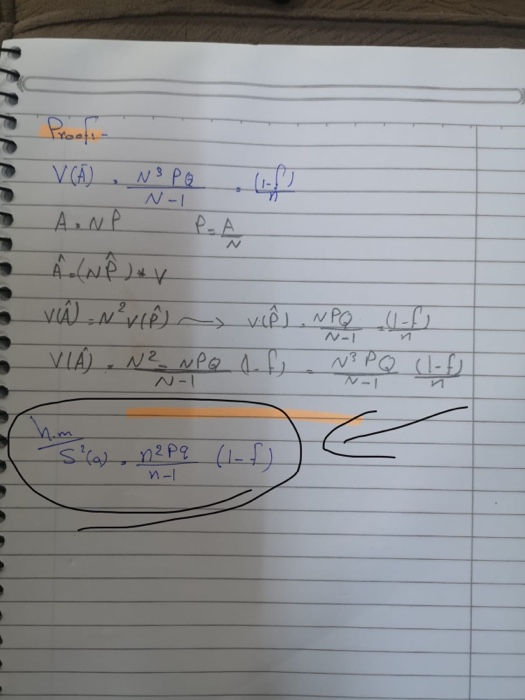 Proofs-
V(Â) = N³PQ/N-1 . (1-f)/n
A = NP P = A/N
Â = (NP̂) * V
V(Â) = N²V(P̂) → V(P̂) = NPQ/N-1 . (1-f)/n
V(Â) = N² - NPQ/N-1 (1-f) = N³PQ/N-1 (1-f)/n
h.m
S²(a) = n²Pq/n-1 (1-f)